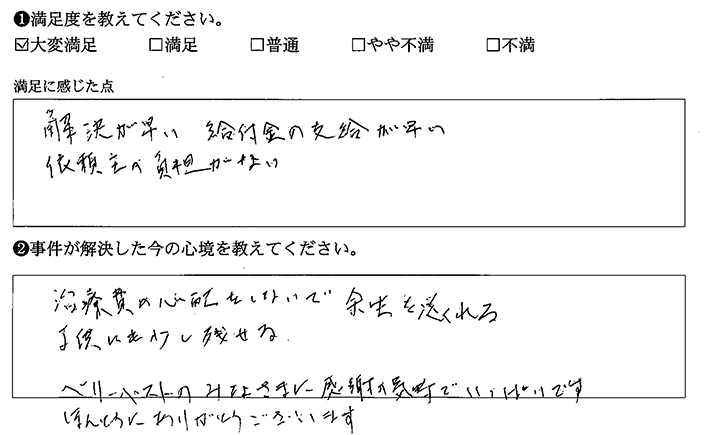 ❶満足度を教えてください。
☑大変満足 □満足 □普通 □やや不満 □不満
満足に感じた点
解決が早い 給付金の支給が早い
依頼主の負担がない
❷事件が解決した今の心境を教えてください。
治療費の心配をしないで 余生を送くれる
子供にも少し残せる
ベリーベストのみなさまに感謝の気町でいっぱいです
ほんとうにありがとうございます